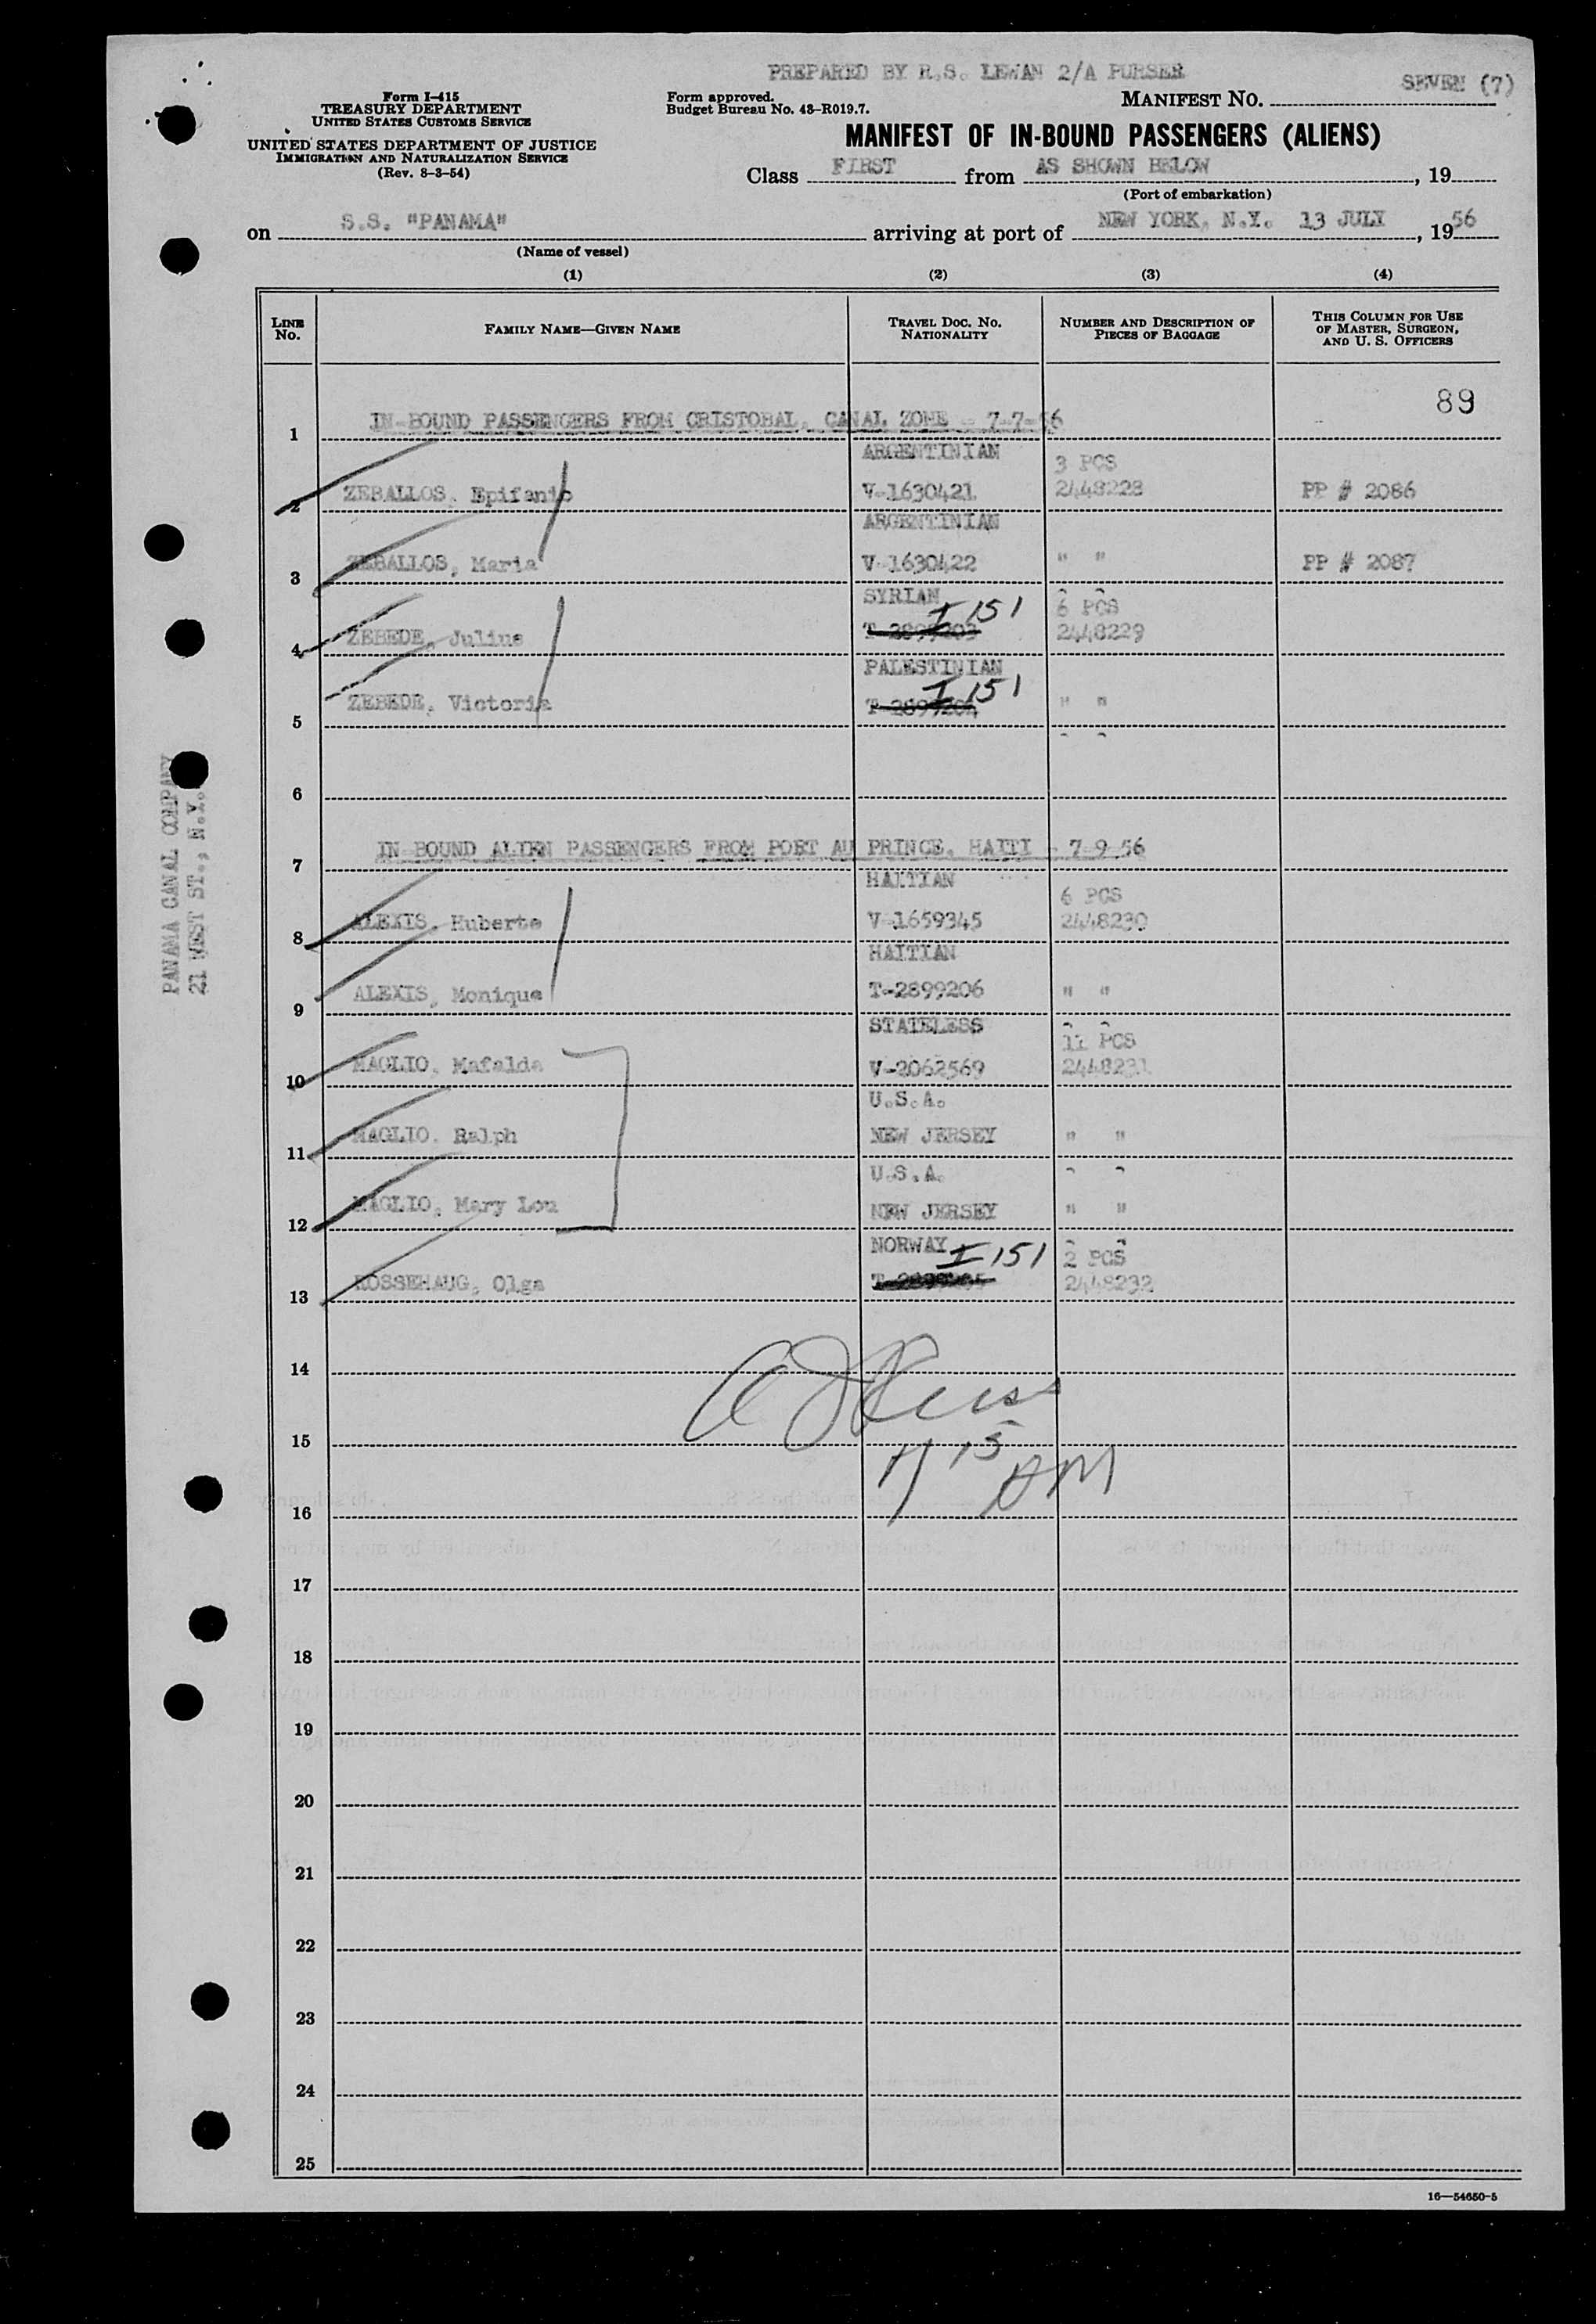 PREPARED BY R.S. LEWAN 2/A PURSER
SEVEN (7)
Form I-415
TREASURY DEPARTMENT
UNITED STATES CUSTOMS SERVICE
UNITED STATES DEPARTMENT OF JUSTICE
IMMIGRATION AND NATURALIZATION SERVICE
(Rev. 8-3-54)
Form approved.
Budget Bureau No. 43-R019.7.
MANIFEST NO.
MANIFEST OF IN-BOUND PASSENGERS (ALIENS)
Class FIRST from AS SHOWN BELOW, 19
(Port of embarkation)
on S.S. "PANAMA" arriving at port of NEW YORK, N.Y. 13 JULY, 1956
(Name of vessel)
(1) (2) (3) (4)
LINE NO. FAMILY NAME—GIVEN NAME TRAVEL DOC. NO. NATIONALITY NUMBER AND DESCRIPTION OF PIECES OF BAGGAGE THIS COLUMN FOR USE OF MASTER, SURGEON, AND U. S. OFFICERS
89
1 IN-BOUND PASSENGERS FROM CRISTOBAL, CANAL ZONE - 7-7-56
ARGENTINIAN 3 PCS
2 ZEBALLOS, Epifanio V-1630421 2448228 PP # 2086
ARGENTINIAN
3 ZEBALLOS, Maria V-1630422 " " PP # 2087
SYRIAN I 151 6 PCS
4 ZEBEDE, Julius T-2899203 2448229
PALESTINIAN I 151
5 ZEBEDE, Victoria T-2899204 " "
6
7 IN-BOUND ALIEN PASSENGERS FROM PORT AU PRINCE, HAITI - 7-9-56
HAITIAN 6 PCS
8 ALEXIS, Huberte V-1659345 2448230
HAITIAN
9 ALEXIS, Monique T-2899206 " "
STATELESS 11 PCS
10 MAGLIO, Mafalda V-2062569 2448231
U.S.A.
11 MAGLIO, Ralph NEW JERSEY " "
U.S.A.
12 MAGLIO, Mary Lou NEW JERSEY " "
NORWAY I 151 2 PCS
13 ROSSEHAUG, Olga 2448232
14
15
11 15 AM
16
17
18
19
20
21
22
23
24
25
16—54650-5
PANAMA CANAL COMPANY
21 WEST ST., N.Y.